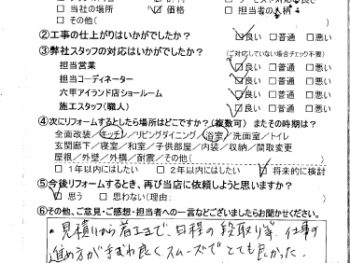 □ 当社の場所 ☑ 価格 □ 担当者の人柄
□ その他(
②工事の仕上がりはいかがでしたか? ☑良い □普通 □悪い
③弊社スタッフの対応はいかがでしたか? (ご対応していない場合チェック不要)
担当営業 ☑良い □普通 □悪い
担当コーディネーター ☑良い □普通 □悪い
六甲アイランド店ショールーム □良い □普通 □悪い
施工スタッフ(職人) ☑良い □普通 □悪い
④次にリフォームするとしたら場所はどこですか?(複数可) またその時期は?
全面改装/キッチン/リビングダイニング/浴室/洗面室/トイレ
玄関廊下/寝室/和室/子供部屋/内装/収納/間取変更
屋根/外壁/外構/耐震/その他(
□ 1年以内にはしたい □ 2年以内にはしたい ☑ 将来的に検討
⑤今後リフォームするとき、再び当店に依頼しようと思いますか?
☑ 思う □ 思わない(理由:
⑥その他、ご意見・ご感想・担当者への一言などございましたらお聞かせください。
・見積りから着工まで、日程の段取り等、仕事の
進め方がきわめ良くスムーズでとても良かった。